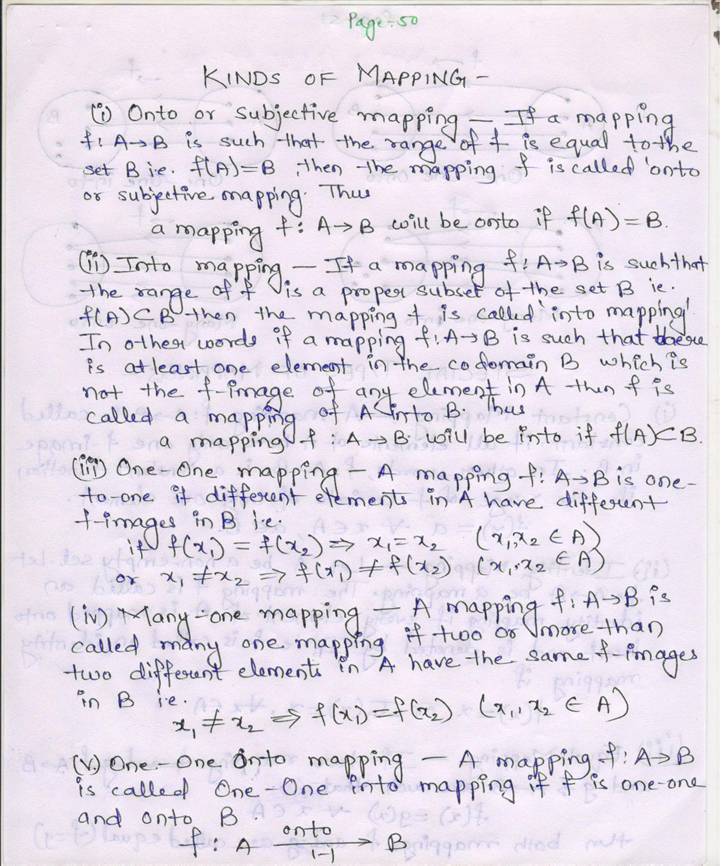 Page-50
KINDS OF MAPPING-
(i) Onto or Subjective mapping — If a mapping
f: A→B is such that the range of f is equal to the
set B ie. f(A)=B, then the mapping f is called 'onto
or subjective mapping. Thus
a mapping f: A→B will be onto if f(A)=B.
(ii) Into mapping — If a mapping f: A→B is such that
the range of f is a proper subset of the set B ie.
f(A)⊂B then the mapping f is called 'into mapping'
In other words if a mapping f: A→B is such that there
is atleast one element in the codomain B which is
not the f-image of any element in A then f is
called a mapping of A into B. Thus
a mapping f: A→B will be into if f(A)⊂B.
(iii) One-One mapping — A mapping f: A→B is one-
to-one if different elements in A have different
f-images in B ie.
if f(x₁) = f(x₂) ⇒ x₁ = x₂ (x₁,x₂ ∈ A)
or x₁ ≠ x₂ ⇒ f(x₁) ≠ f(x₂) (x₁,x₂ ∈ A)
(iv) Many-one mapping — A mapping f: A→B is
called many one mapping if two or more than
two different elements in A have the same f-images
in B ie.
x₁ ≠ x₂ ⇒ f(x₁) = f(x₂) (x₁, x₂ ∈ A)
(v) One-One Onto mapping — A mapping f: A→B
is called One-One into mapping if f is one-one
and onto B.
f: A onto→ B
1-1